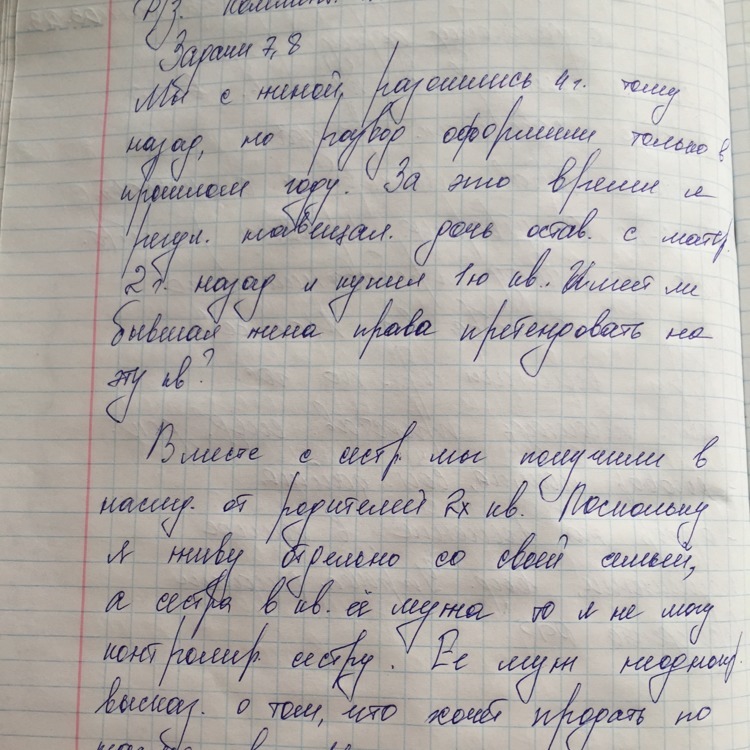 Р/З.
Задачи 7,8
Мы с женой разошлись 4 г. тому
назад, но развод оформили только в
прошлом году. За это время я
регул. навещал. дочь остав. с матер.
2 г. назад я купил 1ю кв. Имеет ли
бывшая жена права претендовать на
эту кв?
Вместе с сестр мы получили в
наслед. от родителей 2х кв. Поскольку
я живу отдельно со своей семьей,
а сестра в кв. её мужа то я не могу
контролир. сестру. Ее муж неоднокр.
высказ. о том, что хочет продать по